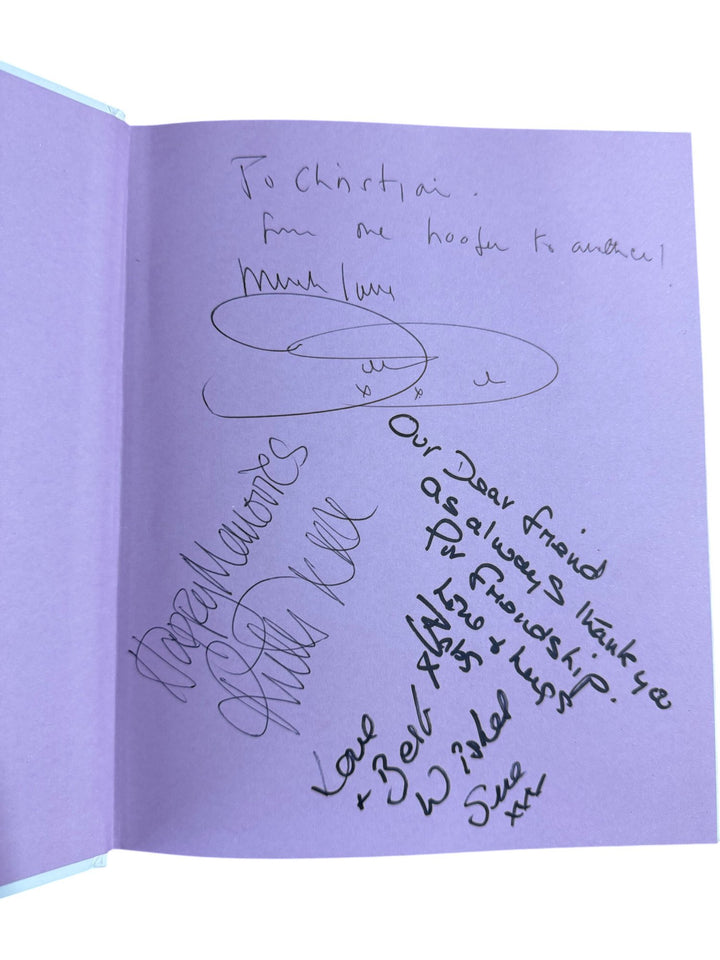 To Christian.
from one hoofer to another!
Much love
x x
Happy Memories
xxx
Our Dear friend
as always thank you
for friendship.
Love & hugs
Love
+ Best
Wishes
Sue
xxx